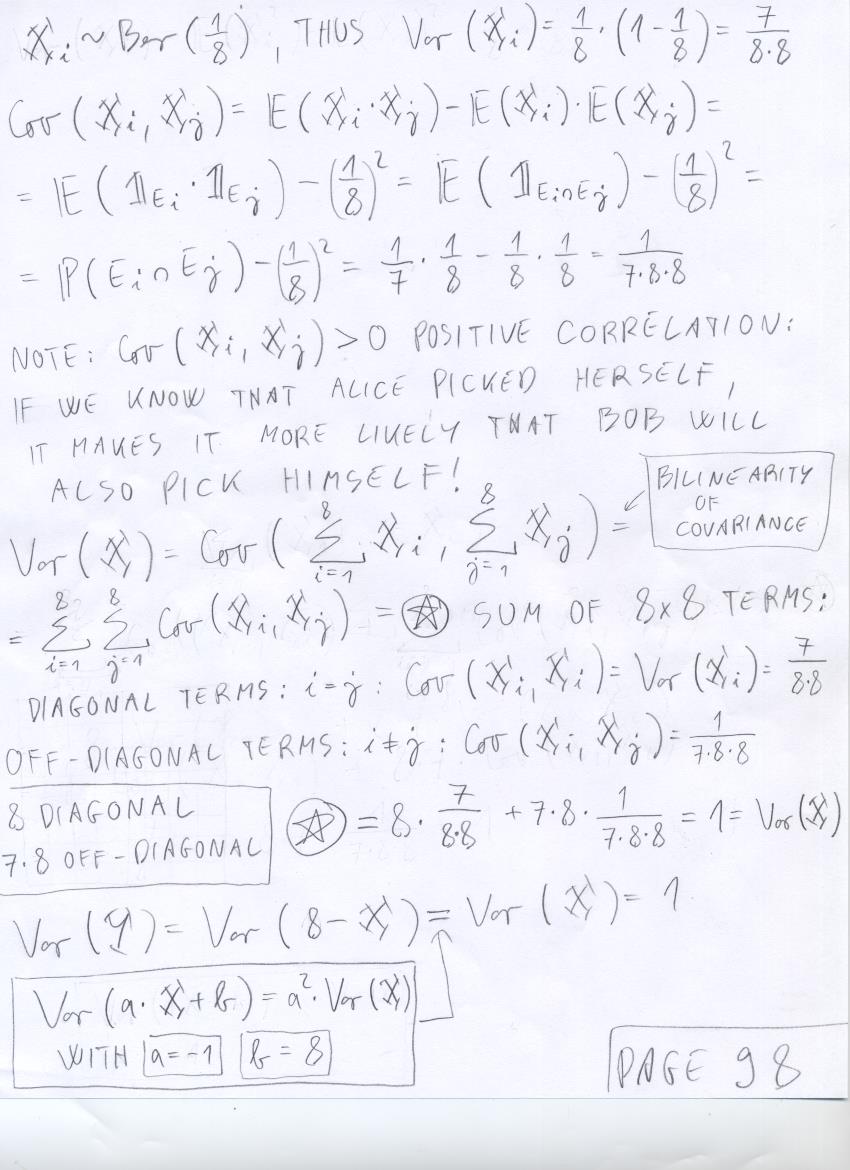 X_i ~ Ber (1/8), THUS Var (X_i) = 1/8 · (1 - 1/8) = 7/(8·8)
Cov (X_i, X_j) = E(X_i · X_j) - E(X_i) · E(X_j) =
= E (𝟙_{E_i} · 𝟙_{E_j}) - (1/8)² = E (𝟙_{E_i ∩ E_j}) - (1/8)² =
= P(E_i ∩ E_j) - (1/8)² = 1/7 · 1/8 - 1/8 · 1/8 = 1/(7·8·8)
NOTE: Cov (X_i, X_j) > 0 POSITIVE CORRELATION:
IF WE KNOW THAT ALICE PICKED HERSELF,
IT MAKES IT MORE LIKELY THAT BOB WILL
ALSO PICK HIMSELF!
Var (X) = Cov ( ∑_{i=1}^{8} X_i, ∑_{j=1}^{8} X_j ) =
BILINEARITY
OF
COVARIANCE
= ∑_{i=1}^{8} ∑_{j=1}^{8} Cov (X_i, X_j) = ⍟ SUM OF 8×8 TERMS:
DIAGONAL TERMS: i=j: Cov (X_i, X_i) = Var (X_i) = 7/(8·8)
OFF-DIAGONAL TERMS: i≠j: Cov (X_i, X_j) = 1/(7·8·8)
8 DIAGONAL
7·8 OFF-DIAGONAL
⍟ = 8 · 7/(8·8) + 7·8 · 1/(7·8·8) = 1 = Var(X)
Var (Y) = Var (8 - X) = Var (X) = 1
Var (a · X + b) = a² · Var (X)
WITH a=-1 b=8
PAGE 98